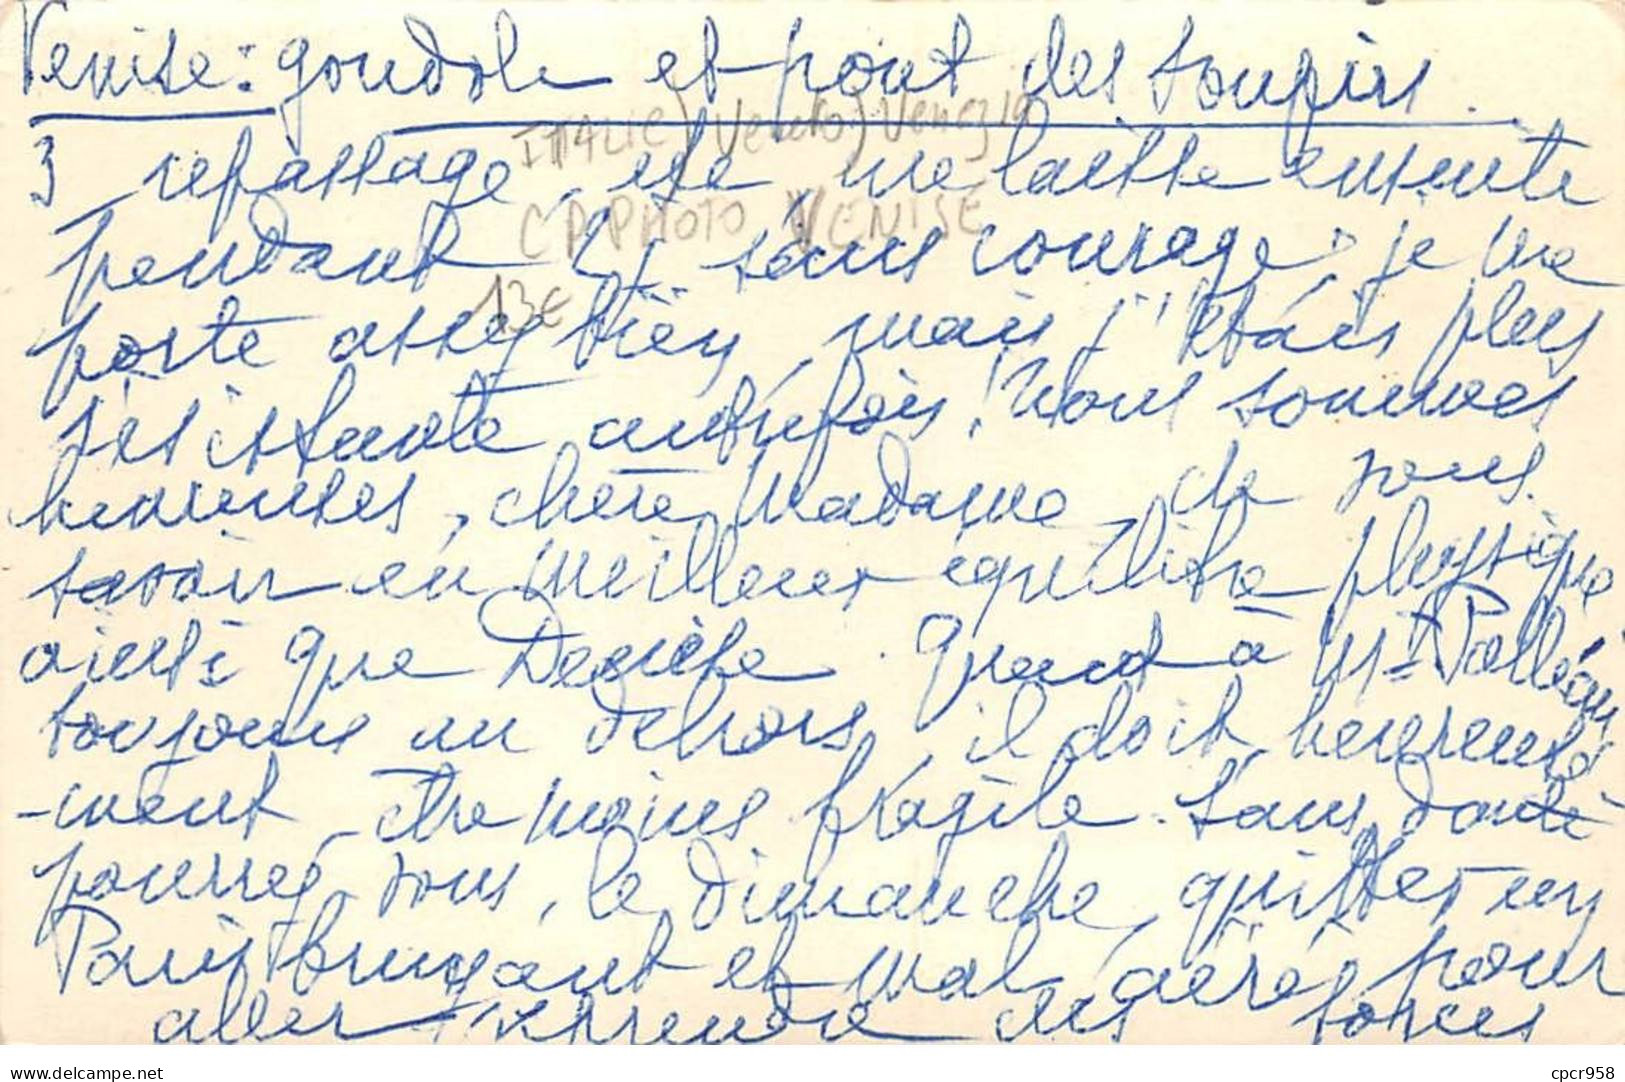 Venise : gondole et pont des soupirs.
ITALIE) Veneto) Venezia
3 repassage, elle me laisse ensuite
CP PHOTO VENISE
pendant sans courage, je me
13€
porte assez bien, mais j'étais plus
résistante autrefois ! Nous sommes
heureuses, chère Madame, de vous
savoir en meilleur équilibre physique
ainsi que Denise. Quant à Mr
toujours au dehors, il doit heureuse
-ment être moins fragile. Sans doute
pourrez-vous, le dimanche, quitter un
Paris bruyant et mal aéré pour
aller reprendre des forces
delcampe.net
cpcr958